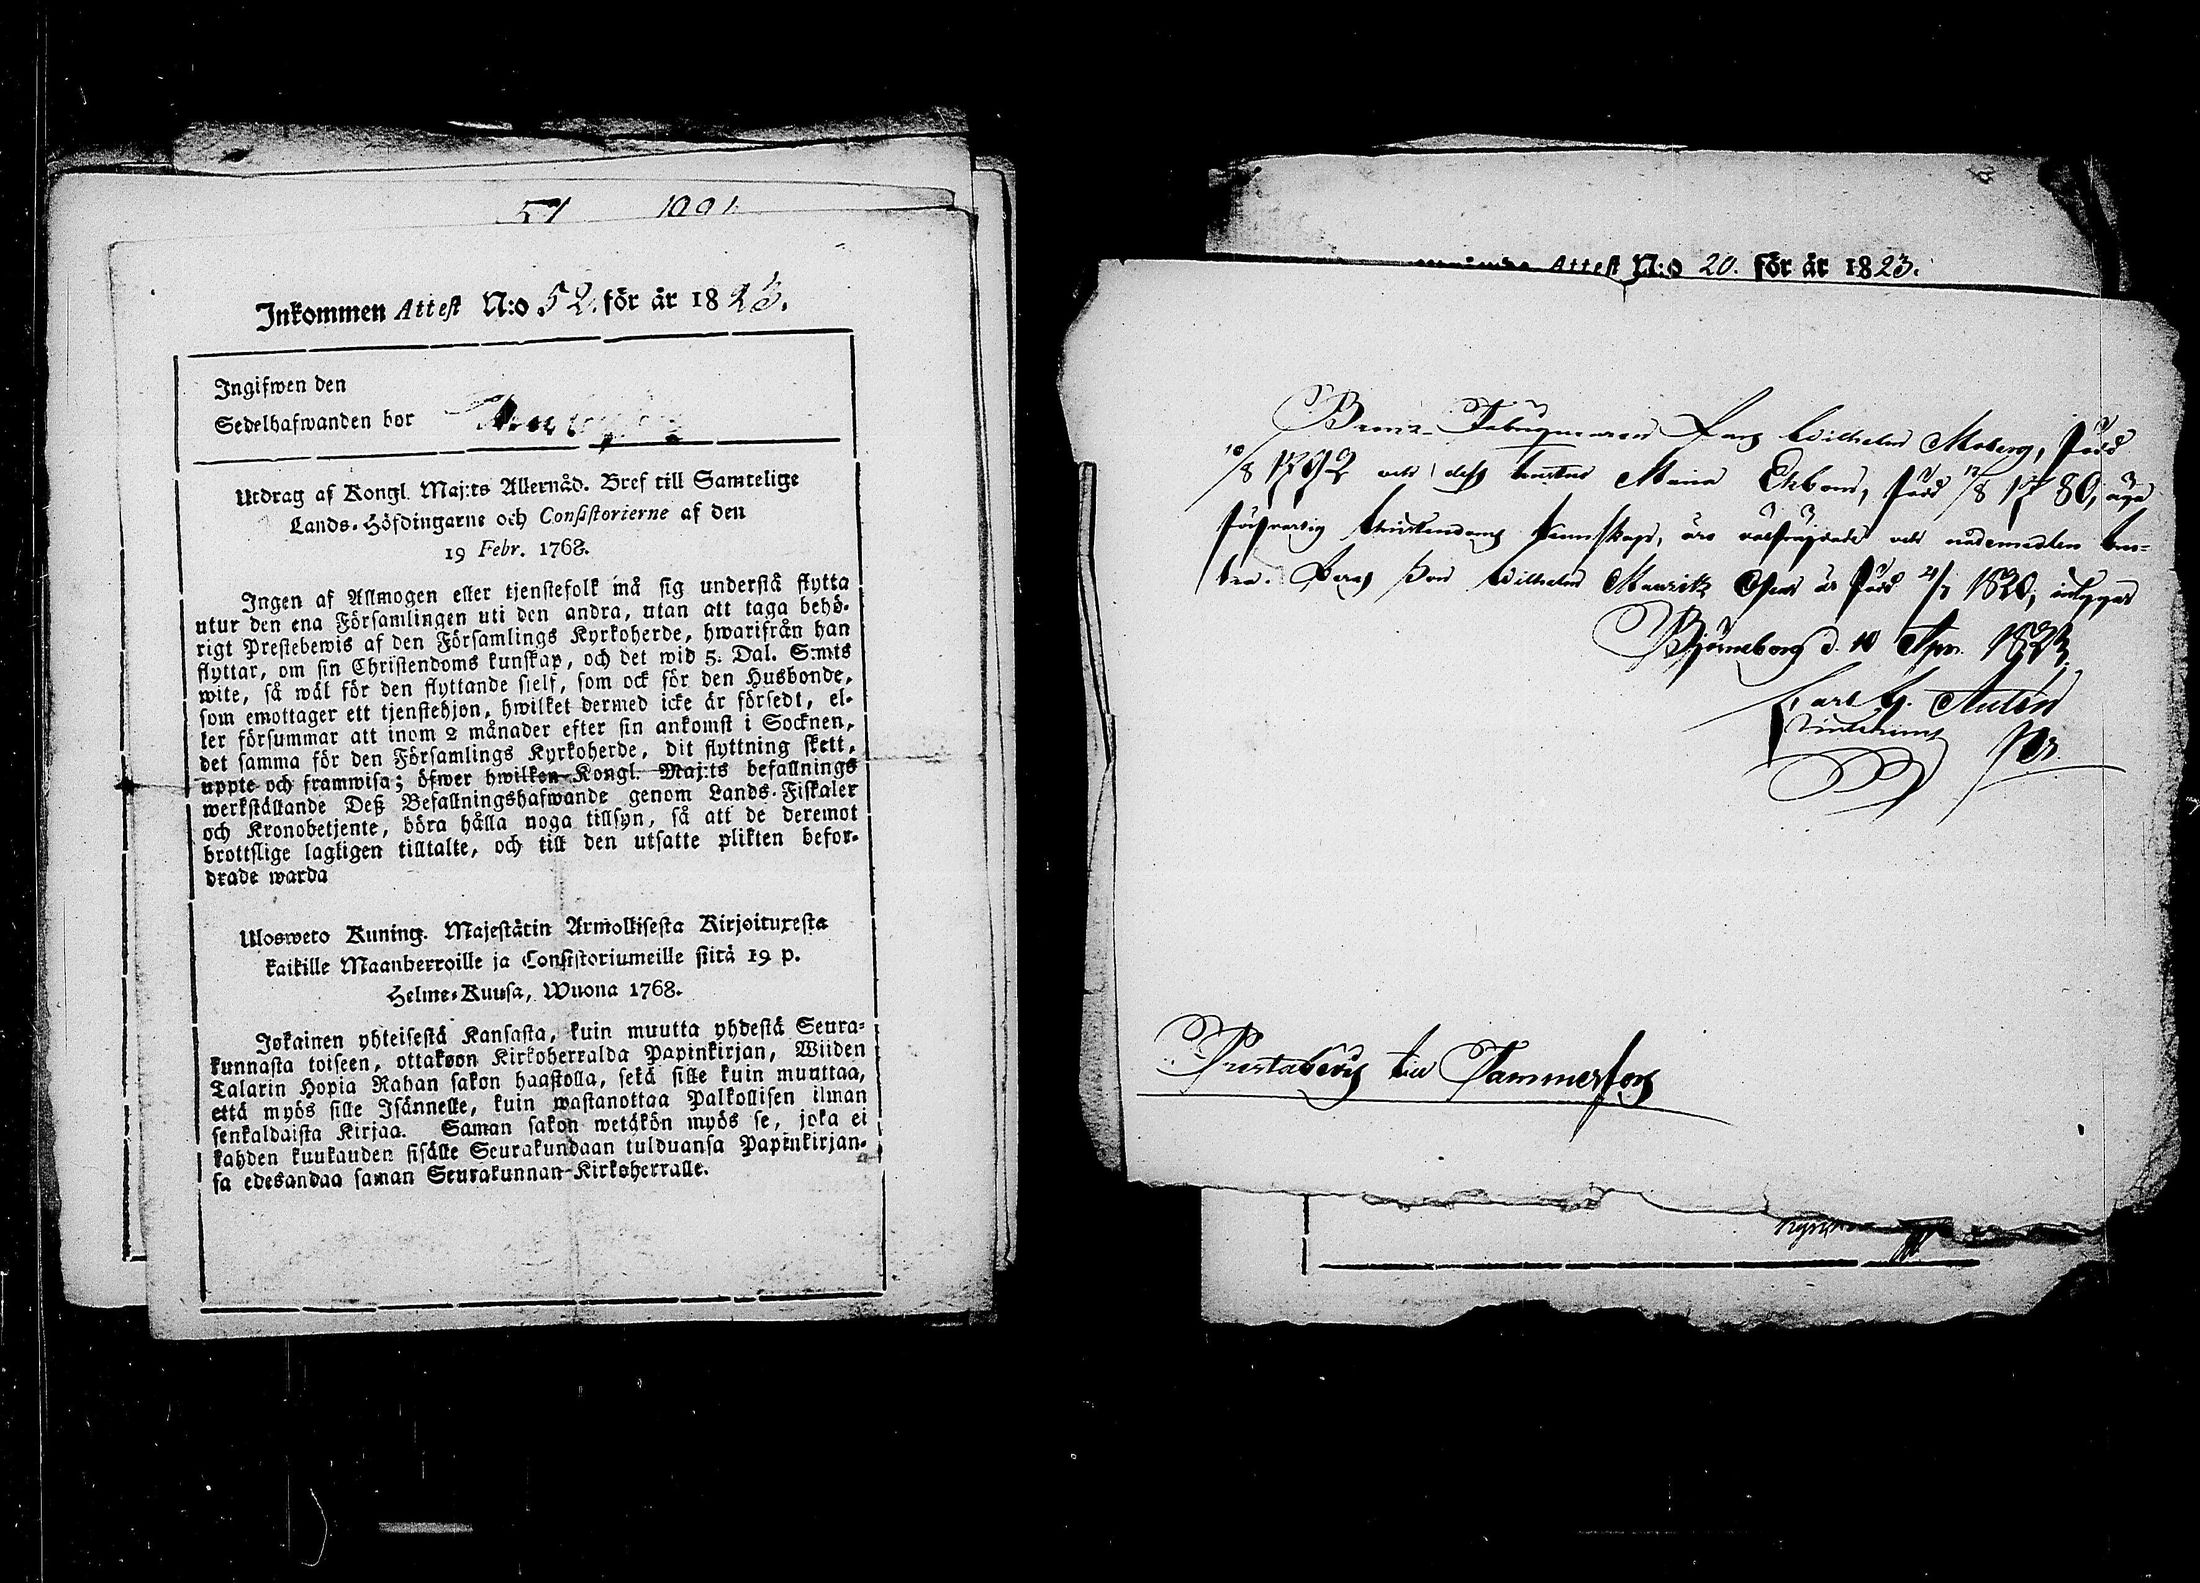 51 1091
Inkommen Attest N:o 52. för år 1823.
Ingifwen den
Sedelhafwanden bor
Utdrag af Kongl. Maj:ts Allernåd. Bref till Samtelige
Lands-Höfdingarne och Consistorierne af den
19 Febr. 1768.
Ingen af Allmogen eller tjenstefolk må sig understå flytta
utur den ena Församlingen uti den andra, utan att taga behö-
rigt Prestebewis af den Församlings Kyrkoherde, hwarifrån han
flyttar, om sin Christendoms kunskap, och det wid 5. Dal. S:mts
wite, så wäl för den flyttande sielf, som ock för den Husbonde,
som emottager ett tjenstehjon, hwilket dermed icke är försedt, el-
ler försummar att inom 2 månader efter sin ankomst i Socknen,
det samma för den Församlings Kyrkoherde, dit flyttning skett,
uppte och framwisa; öfwer hwilken Kongl. Maj:ts befallnings
werkställande Deß Befallningshafwande genom Lands-Fiskaler
och Kronobetjente, böra hålla noga tillsyn, så att de deremot
brottslige lagligen tilltalte, och till den utsatte plikten befor-
drade warda
Ulosweto Kuning. Majestätin Armollisesta Kirjoituxesta
kaikille Maanherroille ja Consistoriumeille siitä 19 p.
Helme-Kuusa, Wuona 1768.
Jokainen yhteisestä Kansasta, kuin muutta yhdestä Seura-
kunnasta toiseen, ottakoon Kirkoherralda Papinkirjan, Wiiden
Talarin Hopia Rahan sakon haastolla, sekä sille kuin muuttaa,
että myös sille Isännelle, kuin wastanottaa Palkollisen ilman
senkaldaista Kirjaa. Saman sakon wetäkön myös se, joka ei
kahden kuukauden sisälle Seurakundaan tulduansa Papinkirjan-
sa edesandaa saman Seurakunnan Kirkoherralle.
Attest N:o 20. för år 1823.
Lars Wilhelm Moberg, född
10/8 1792 och dess hustru Maria Ekbom, född 12/8 1780, äga
försvarlig christendoms kunskap, äro välfräjdade och nådemedlen bru-
ka. Deras Son Wilhelm Mauritz är född 1820, intygar
Björneborg d. 10 Apr. 1823.
Carl G.
Prestabevis till Tammerfors